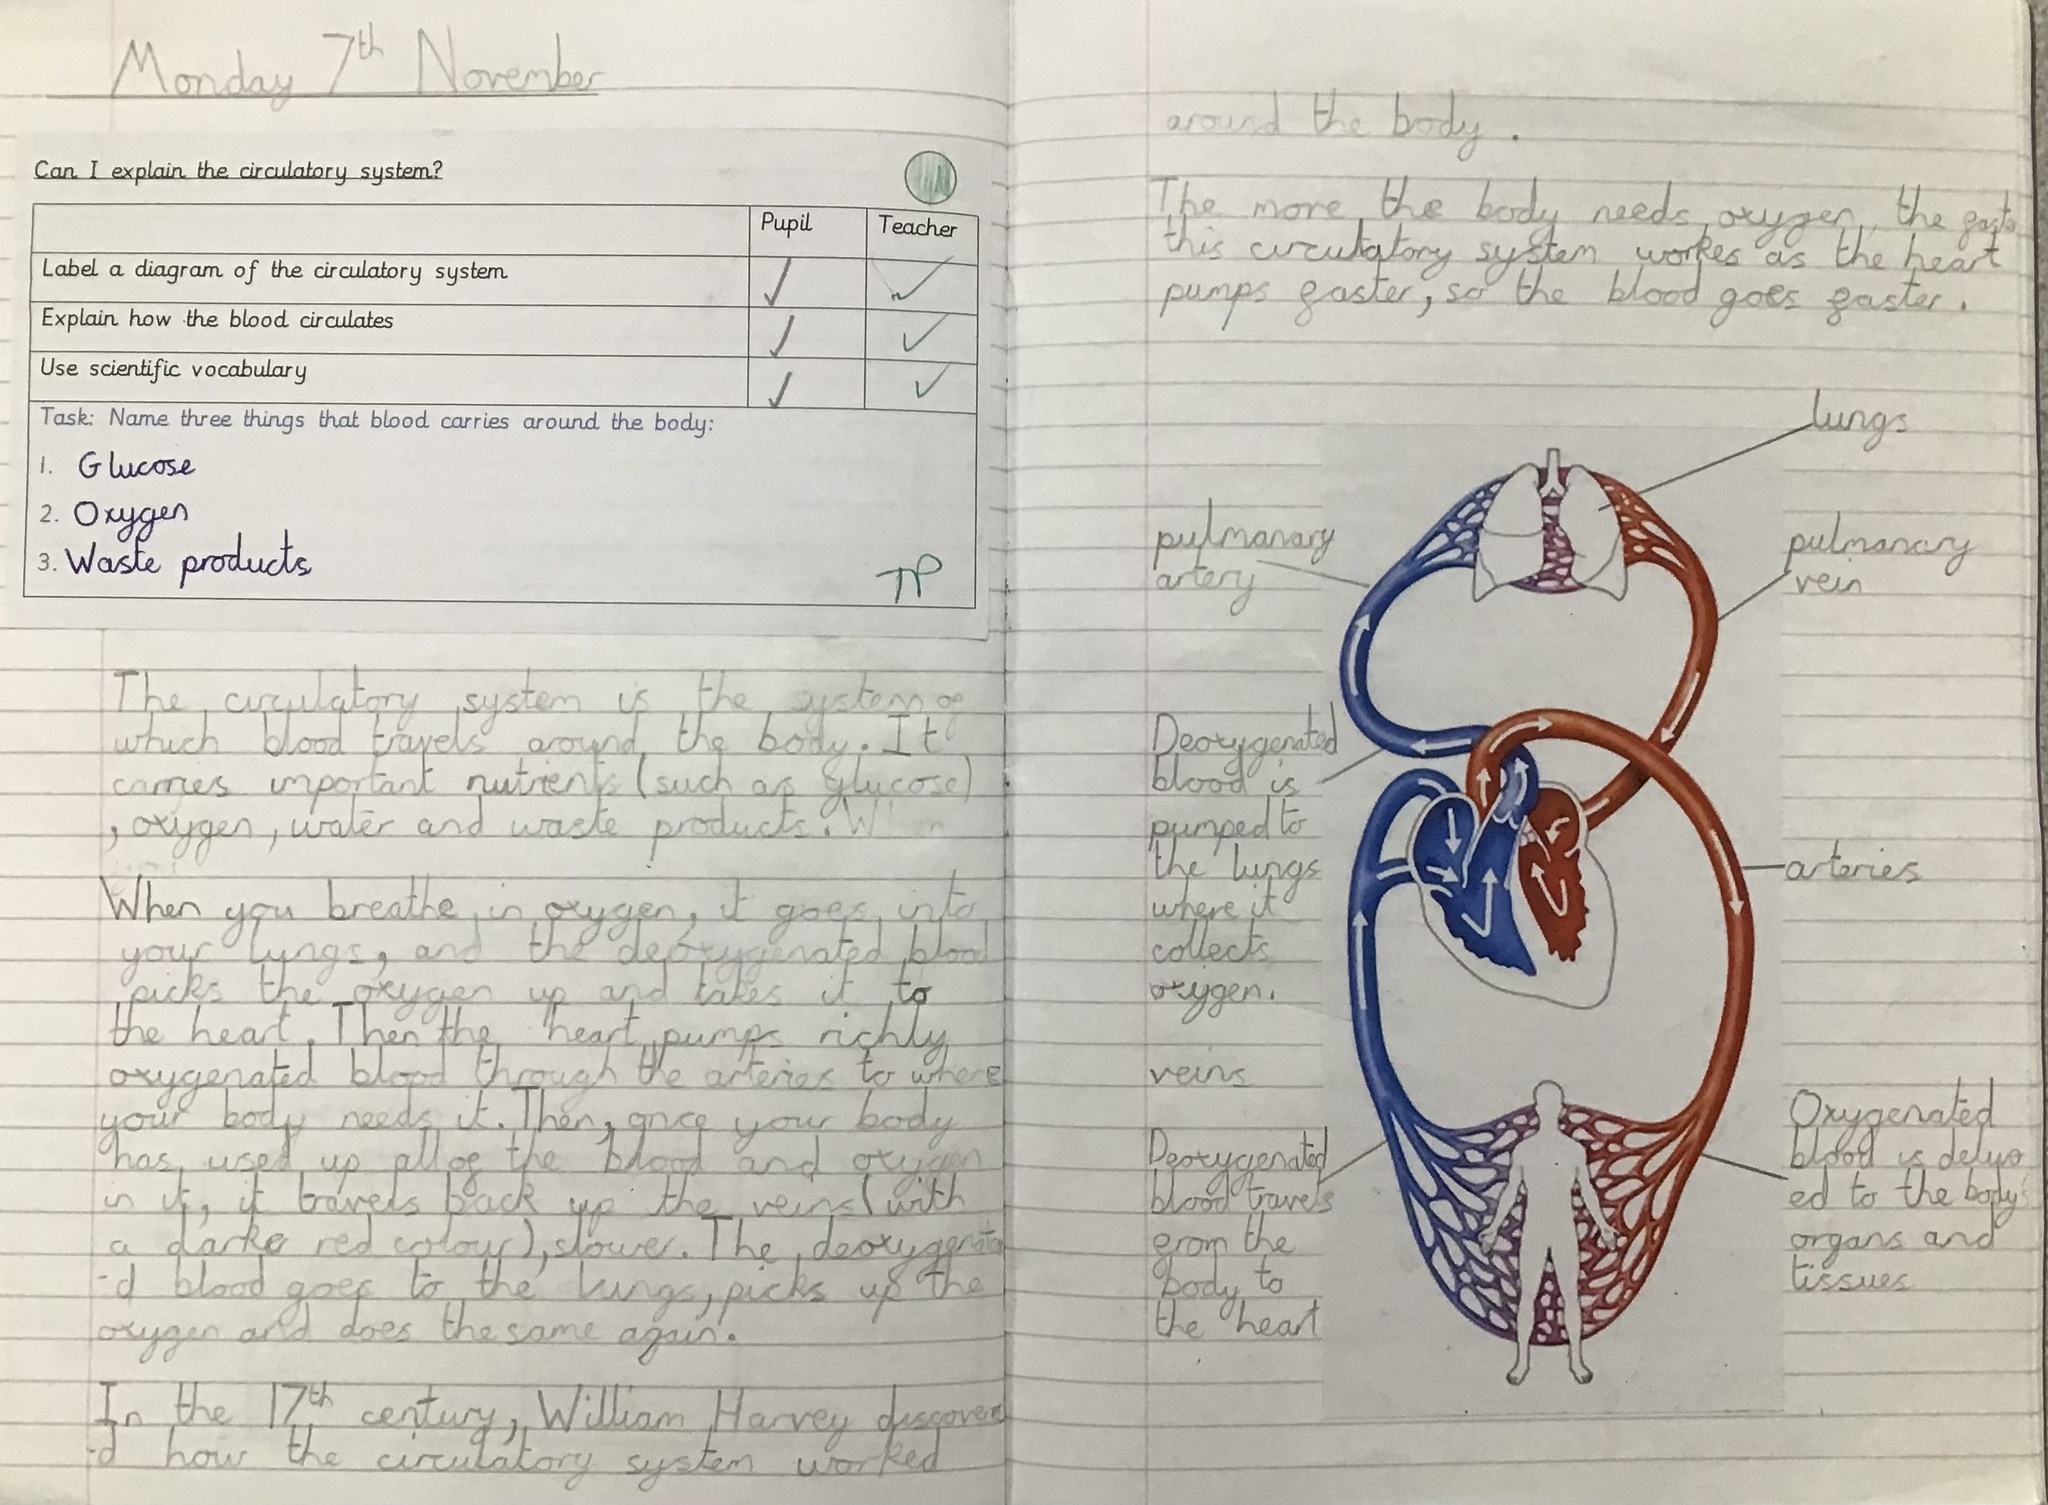 Monday 7th November
Can I explain the circulatory system?
Pupil Teacher
Label a diagram of the circulatory system
Explain how the blood circulates
Use scientific vocabulary
Task: Name three things that blood carries around the body:
1. Glucose
2. Oxygen
3. Waste products
TP
The circulatory system is the system of
which blood travels around the body. It
carries important nutrients (such as glucose)
, oxygen, water and waste products.
When you breathe in oxygen, it goes into
your lungs, and the deoxygenated blood
picks the oxygen up and takes it to
the heart. Then the heart pumps richly
oxygenated blood through the arteries to where
your body needs it. Then, once your body
has used up all of the blood and oxygen
in it, it travels back up the veins (with
a darker red colour), slower. The deoxygenate
-d blood goes to the lungs, picks up the
oxygen and does the same again.
In the 17th century, William Harvey discovere
-d how the circulatory system worked
around the body.
The more the body needs oxygen, the
this circulatory system workes as the heart
pumps faster, so the blood goes faster.
lungs
pulmanary
artery
pulmanary
vein
Deoxygenated
blood is
pumped to
the lungs
where it
collects
oxygen.
arteries
veins
Deoxygenated
blood travels
from the
body to
the heart
Oxygenated
blood is
ed to the body
organs and
tissues